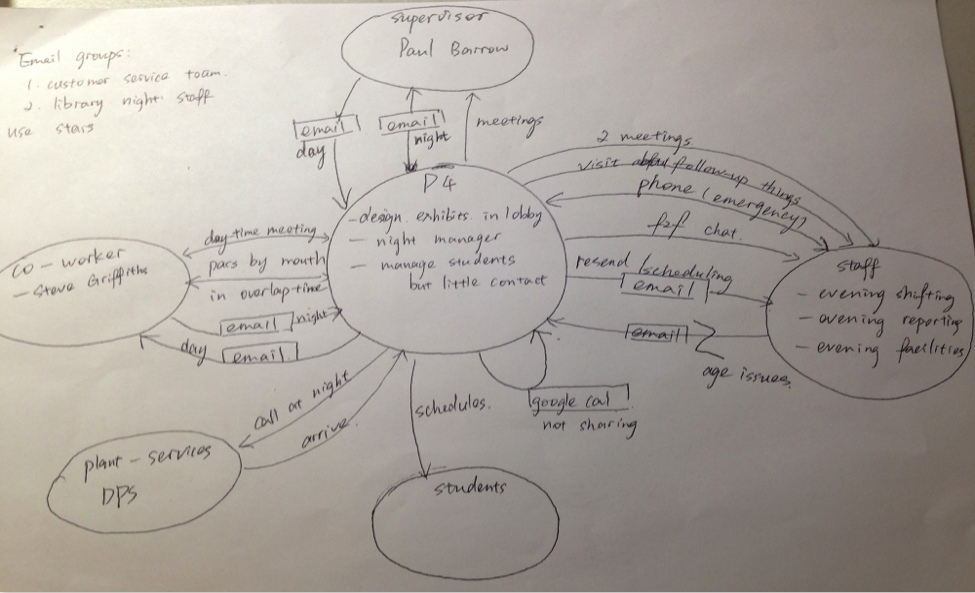 Email groups:
1. customer service team.
2. library night staff
use stars
supervisor
Paul Barrow
email
day
email
night
meetings
P4
- design exhibits in lobby
- night manager
- manage students
but little contact
2 meetings
visit follow-up things
phone (emergency)
f2f chat.
resend /scheduling
email
email
age issues.
staff
- evening shifting
- evening reporting
- evening facilities
co-worker
- Steve Griffiths
day-time meeting
pars by mouth
in overlap-time
email night
day email
call at night
arrive.
plant-services
DPS
schedules.
students
google cal
not sharing